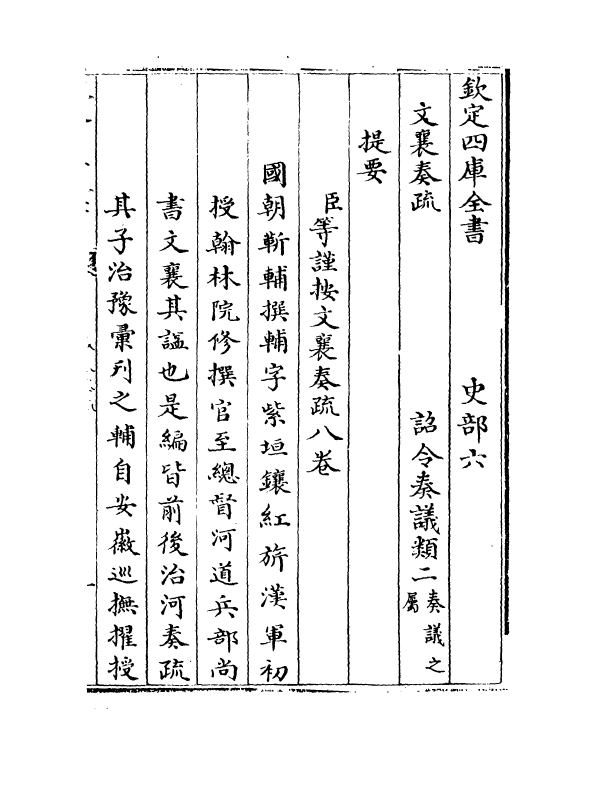 欽定四庫全書　　　　史部六
文襄奏疏　　　　　　詔令奏議類二奏議之屬
提要
臣等謹按文襄奏疏八卷
國朝靳輔撰輔字紫垣鑲紅旂漢軍初
授翰林院修撰官至總督河道兵部尚
書文襄其諡也是編皆前後治河奏疏
其子治豫彙列之輔自安徽巡撫擢授